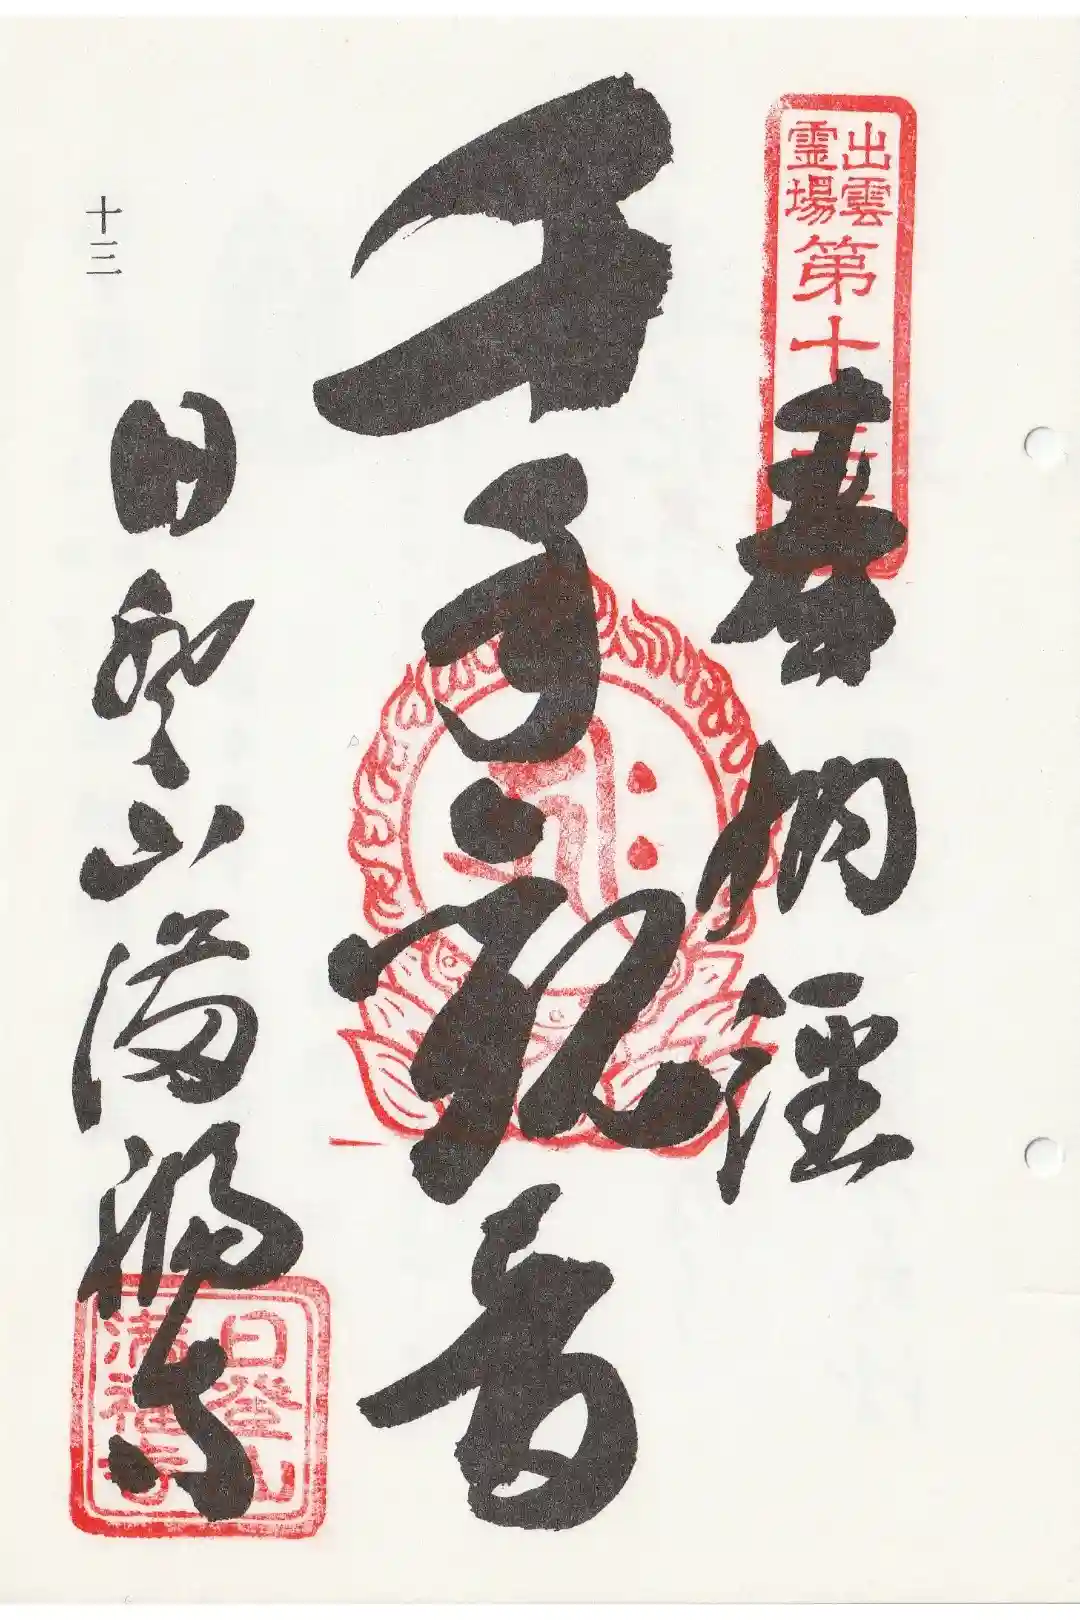 出雲
霊場
第十三
奉納経
千手観音
日登山満福寺
十三
日登山
満福寺